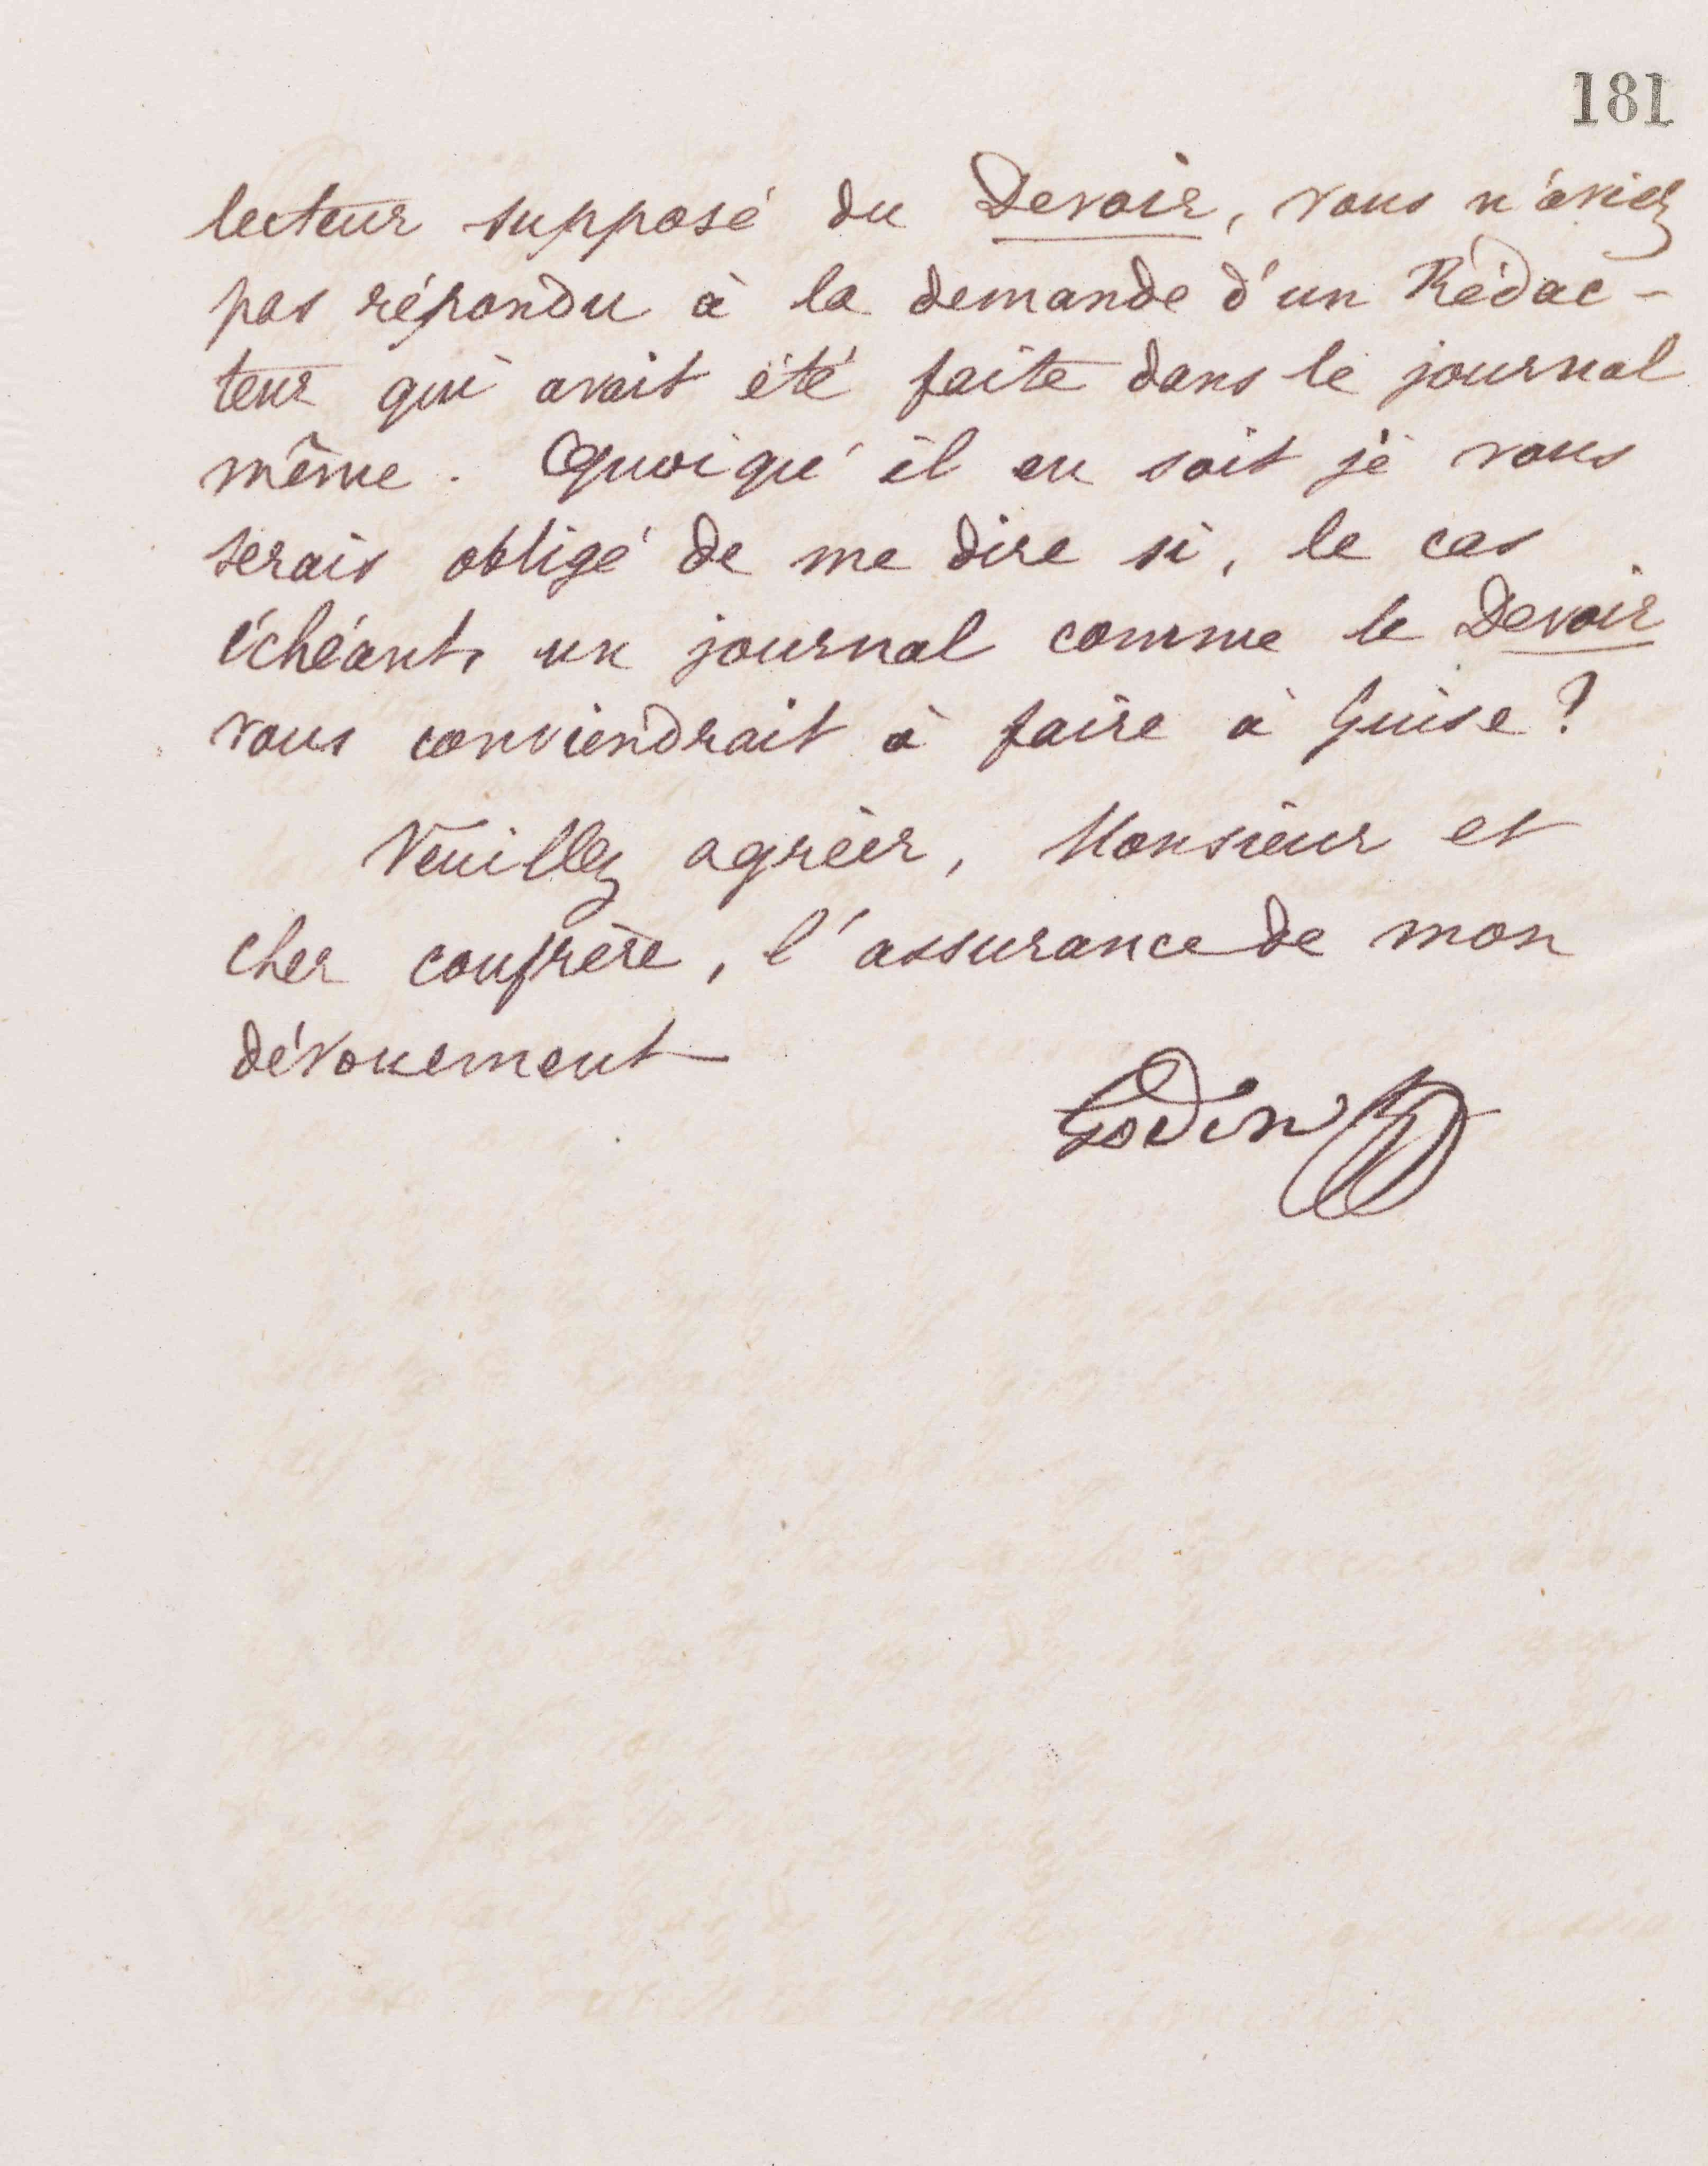 181
lecteur supposé du Devoir, vous n'aviez
pas répondu à la demande d'un Rédac-
teur qui avait été faite dans le journal
même. Quoiqu'il en soit je vous
serais obligé de me dire si, le cas
échéant, un journal comme le Devoir
vous conviendrait à faire à Guise?
Veuillez agréer, Monsieur et
cher confrère, l'assurance de mon
dévouement
Godin